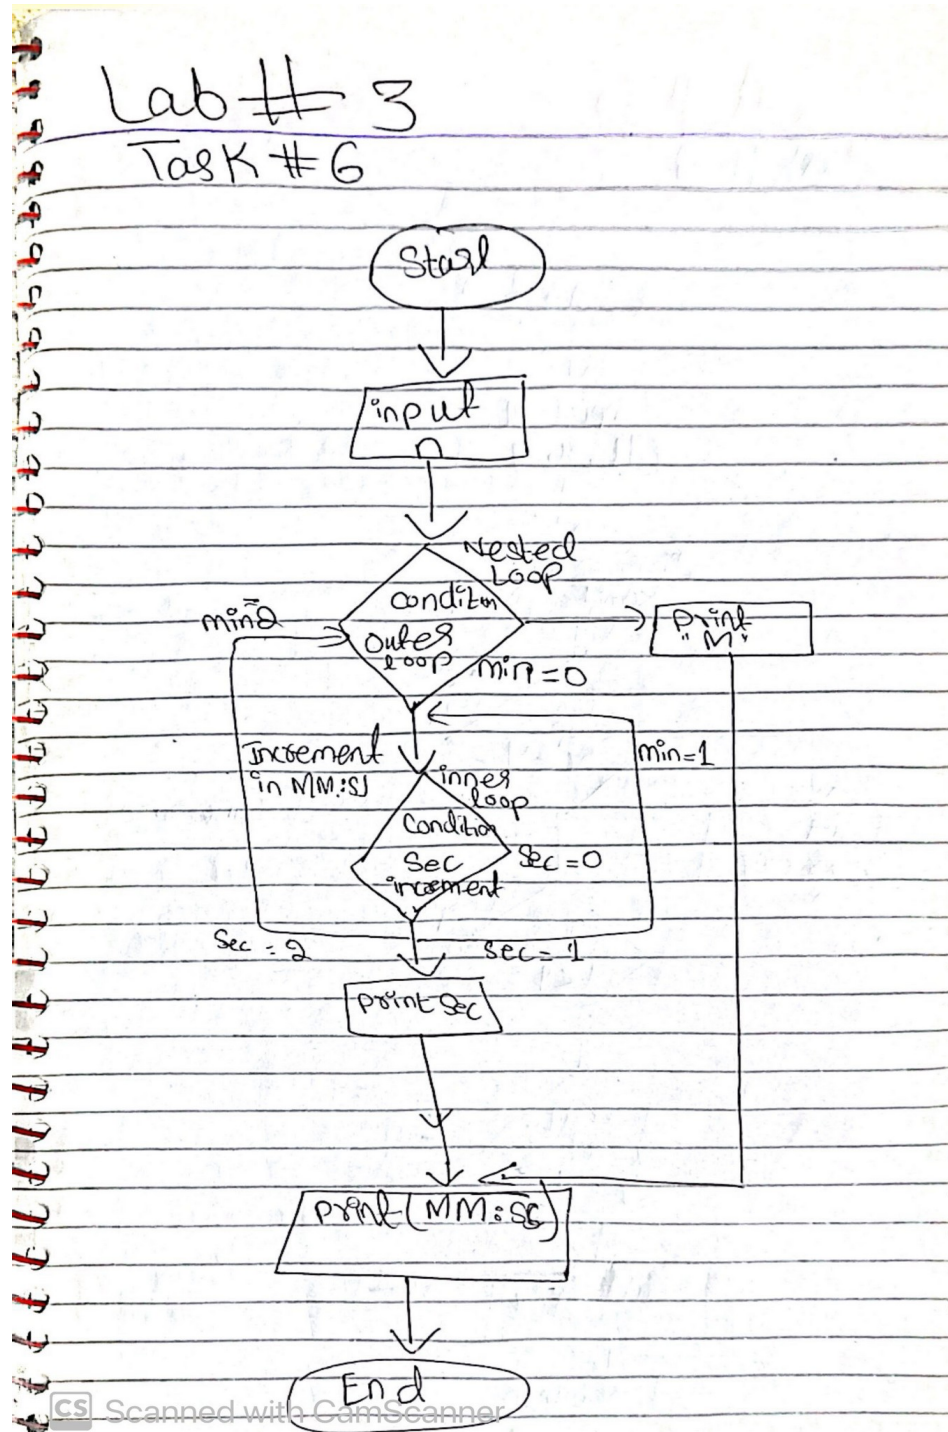 Lab # 3
Task # 6
Start
input
n
Nested
Loop
condition
outer
loop
min=2
min=0
print
"M"
Increment
in MM:SS
min=1
inner
loop
Condition
Sec
increment
Sec=0
Sec=2
Sec=1
print Sec
print(MM:SS)
End
CS Scanned with CamScanner